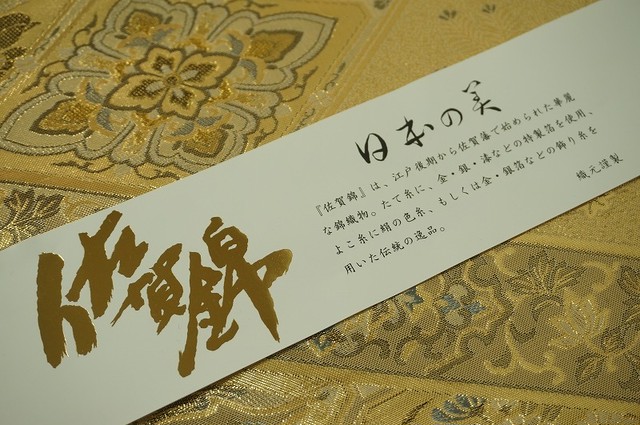 佐賀錦
日本の美
『佐賀錦』は、江戸後期から佐賀藩で始められた華麗
な錦織物。たて糸に、金・銀・漆などの特製箔を使用、
よこ糸に絹の色糸、もしくは金・銀箔などの飾り糸を
用いた伝統の逸品。
織元謹製